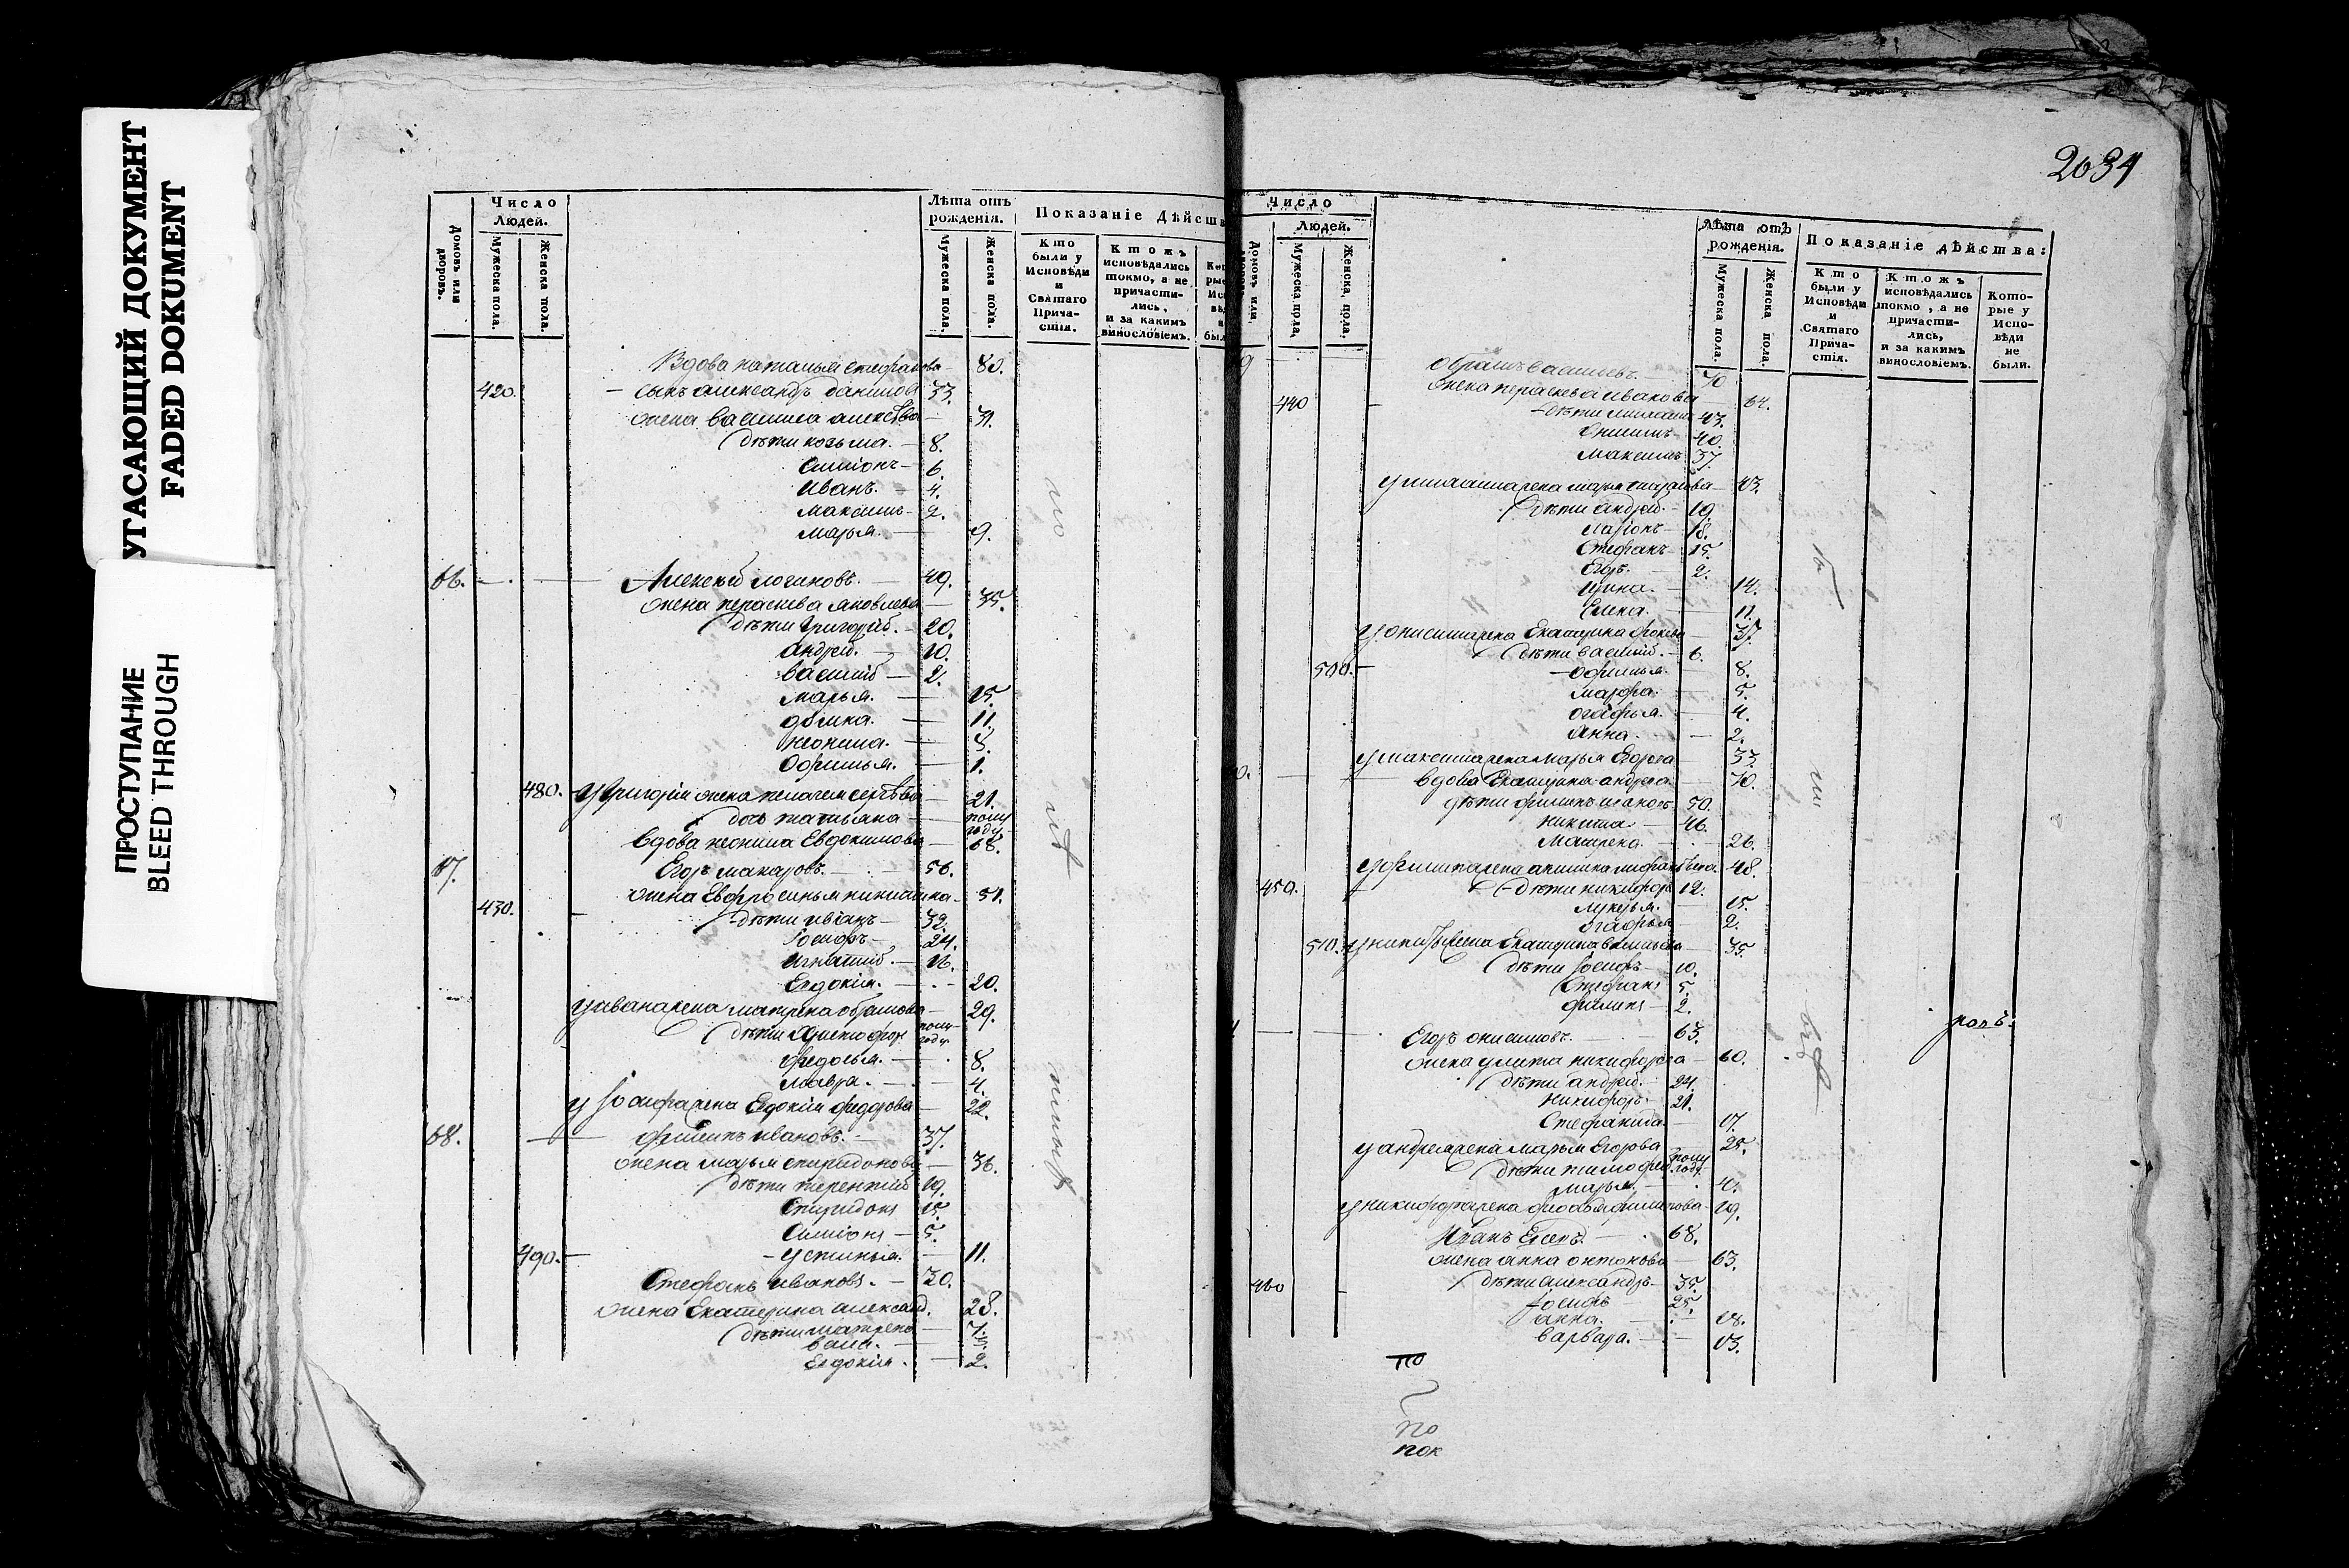 УГАСАЮЩИЙ ДОКУМЕНТ
FADED DOKUMENT
ПРОСТУПАНИЕ
BLEED THROUGH
Домовъ или дворовъ.
Число Людей.
Мужеска пола.
Женска пола.
Лѣта отъ рожденія.
Мужеска пола.
Женска пола.
Показаніе Дѣйств
Кто были у Исповѣди и Святаго Прича-стія.
Ктожъ исповѣдались токмо, а не причасти-лись, и за какимъ винословіемъ.
Вдова наталья стефанова 80.
420. сынъ александръ данилов 33.
жена василиса алексѣва 31.
дѣти козьма. 8.
Симіонъ 6.
Иванъ. 4.
Максимъ 2.
Марья. 9.
66. Алексѣй логиновъ. 49.
жена параскева яковлева 35.
дѣти Григорій. 20.
андрей. 10.
василій 2.
Марья. 15.
11.
неонила. 5.
Офимья. 1.
480. У Григорія жена пелагея сергѣва 21.
дочь татьяна полу году.
вдова неонила Евдокимова 68.
67. Егоръ макаровъ. 56.
жена Евфросинья никитина 51.
430. дѣти иванъ 32.
Іосифъ 24.
игнатий. 16.
Евдокія. 20.
у ивана жена матрена обрамова 29.
дѣти Христофор полу году
федосья. 8.
Мавра. 4.
у Іосифа жена Евдокія федорова 22.
68. филипъ ивановъ. 37.
жена марья спиридонова 36.
дѣти терентий 19.
Спиридонъ 15.
Симіонъ 5.
490. устинья. 11.
Стефанъ ивановъ. 30.
жена Екатерина александ. 28.
дѣти матрена 7.
васа. 5.
Евдокія. 2.
по
2034
Число Людей.
Домовъ или
Мужеска пола.
Женска пола.
Лѣта отъ рожденія.
Мужеска пола.
Женска пола.
Показаніе дѣйства:
Кто были у Исповѣди и Святаго Прича-стія.
Ктожъ исповѣдались токмо, а не причасти-лись, и за какимъ винословіемъ.
Кото-рые у Испо-вѣди не были.
9 обрамъ васильевъ. 70
440 жена параскева иванова 64.
дѣти 43.
Онисимъ 40.
Максимъ 37.
жена марья 43.
дѣти андрей. 19.
Ларіонъ 18.
Стефанъ 15.
Егоръ. 2.
ирина. 14.
Елена. 11.
у онисима жена Екатерина 37.
дѣти василий. 6.
500. офимья. 8.
Марфа. 5.
огафья. 4.
Анна. 2.
у максима жена марья Егорова 33.
0. вдова Екатерина андреева 70.
дѣти филипъ 50.
никита. 46.
Матрена. 26.
у филипа жена акилина 48.
450. дѣти никифоръ 12.
лукерья. 15.
огафья 2.
510. у никиты жена Екатерина васильева 35.
дѣти Іосифъ 10.
Стефанъ 5.
филипъ 2.
Егоръ онисимовъ. 63.
жена улита никифорова 60.
дѣти андрей. 24.
никифоръ 21.
Стефанида 17.
у андрея жена марья Егорова 25.
дѣти тимофей полу году
марья. 4.
у никифора жена филипова 19.
Иванъ 68.
жена анна онтонова 63.
460 дѣти александръ 35.
Іосифъ 25.
анна. 18.
варвара. 13.
по
по
пок